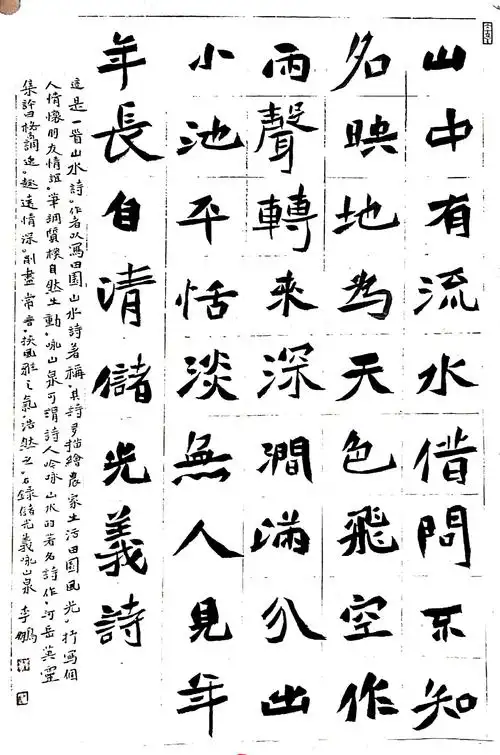 山中有流水借問不知
名映地為天色飛空作
雨聲轉來深澗滿分出
小池平恬淡無人見年
年長自清儲光義詩
這是一首山水詩。作者以寫田園山水詩著稱。其詩多描繪農家生活田園風光。抒寫個
人情懷朋友情誼。筆調質樸自然生動。咏山泉可謂詩人吟咏山水的著名詩作。河岳英靈
集評曰格調逸。趣遠情深。削盡常言。挾風雅之氣浩然之。右錄儲光義咏山泉 李鵬